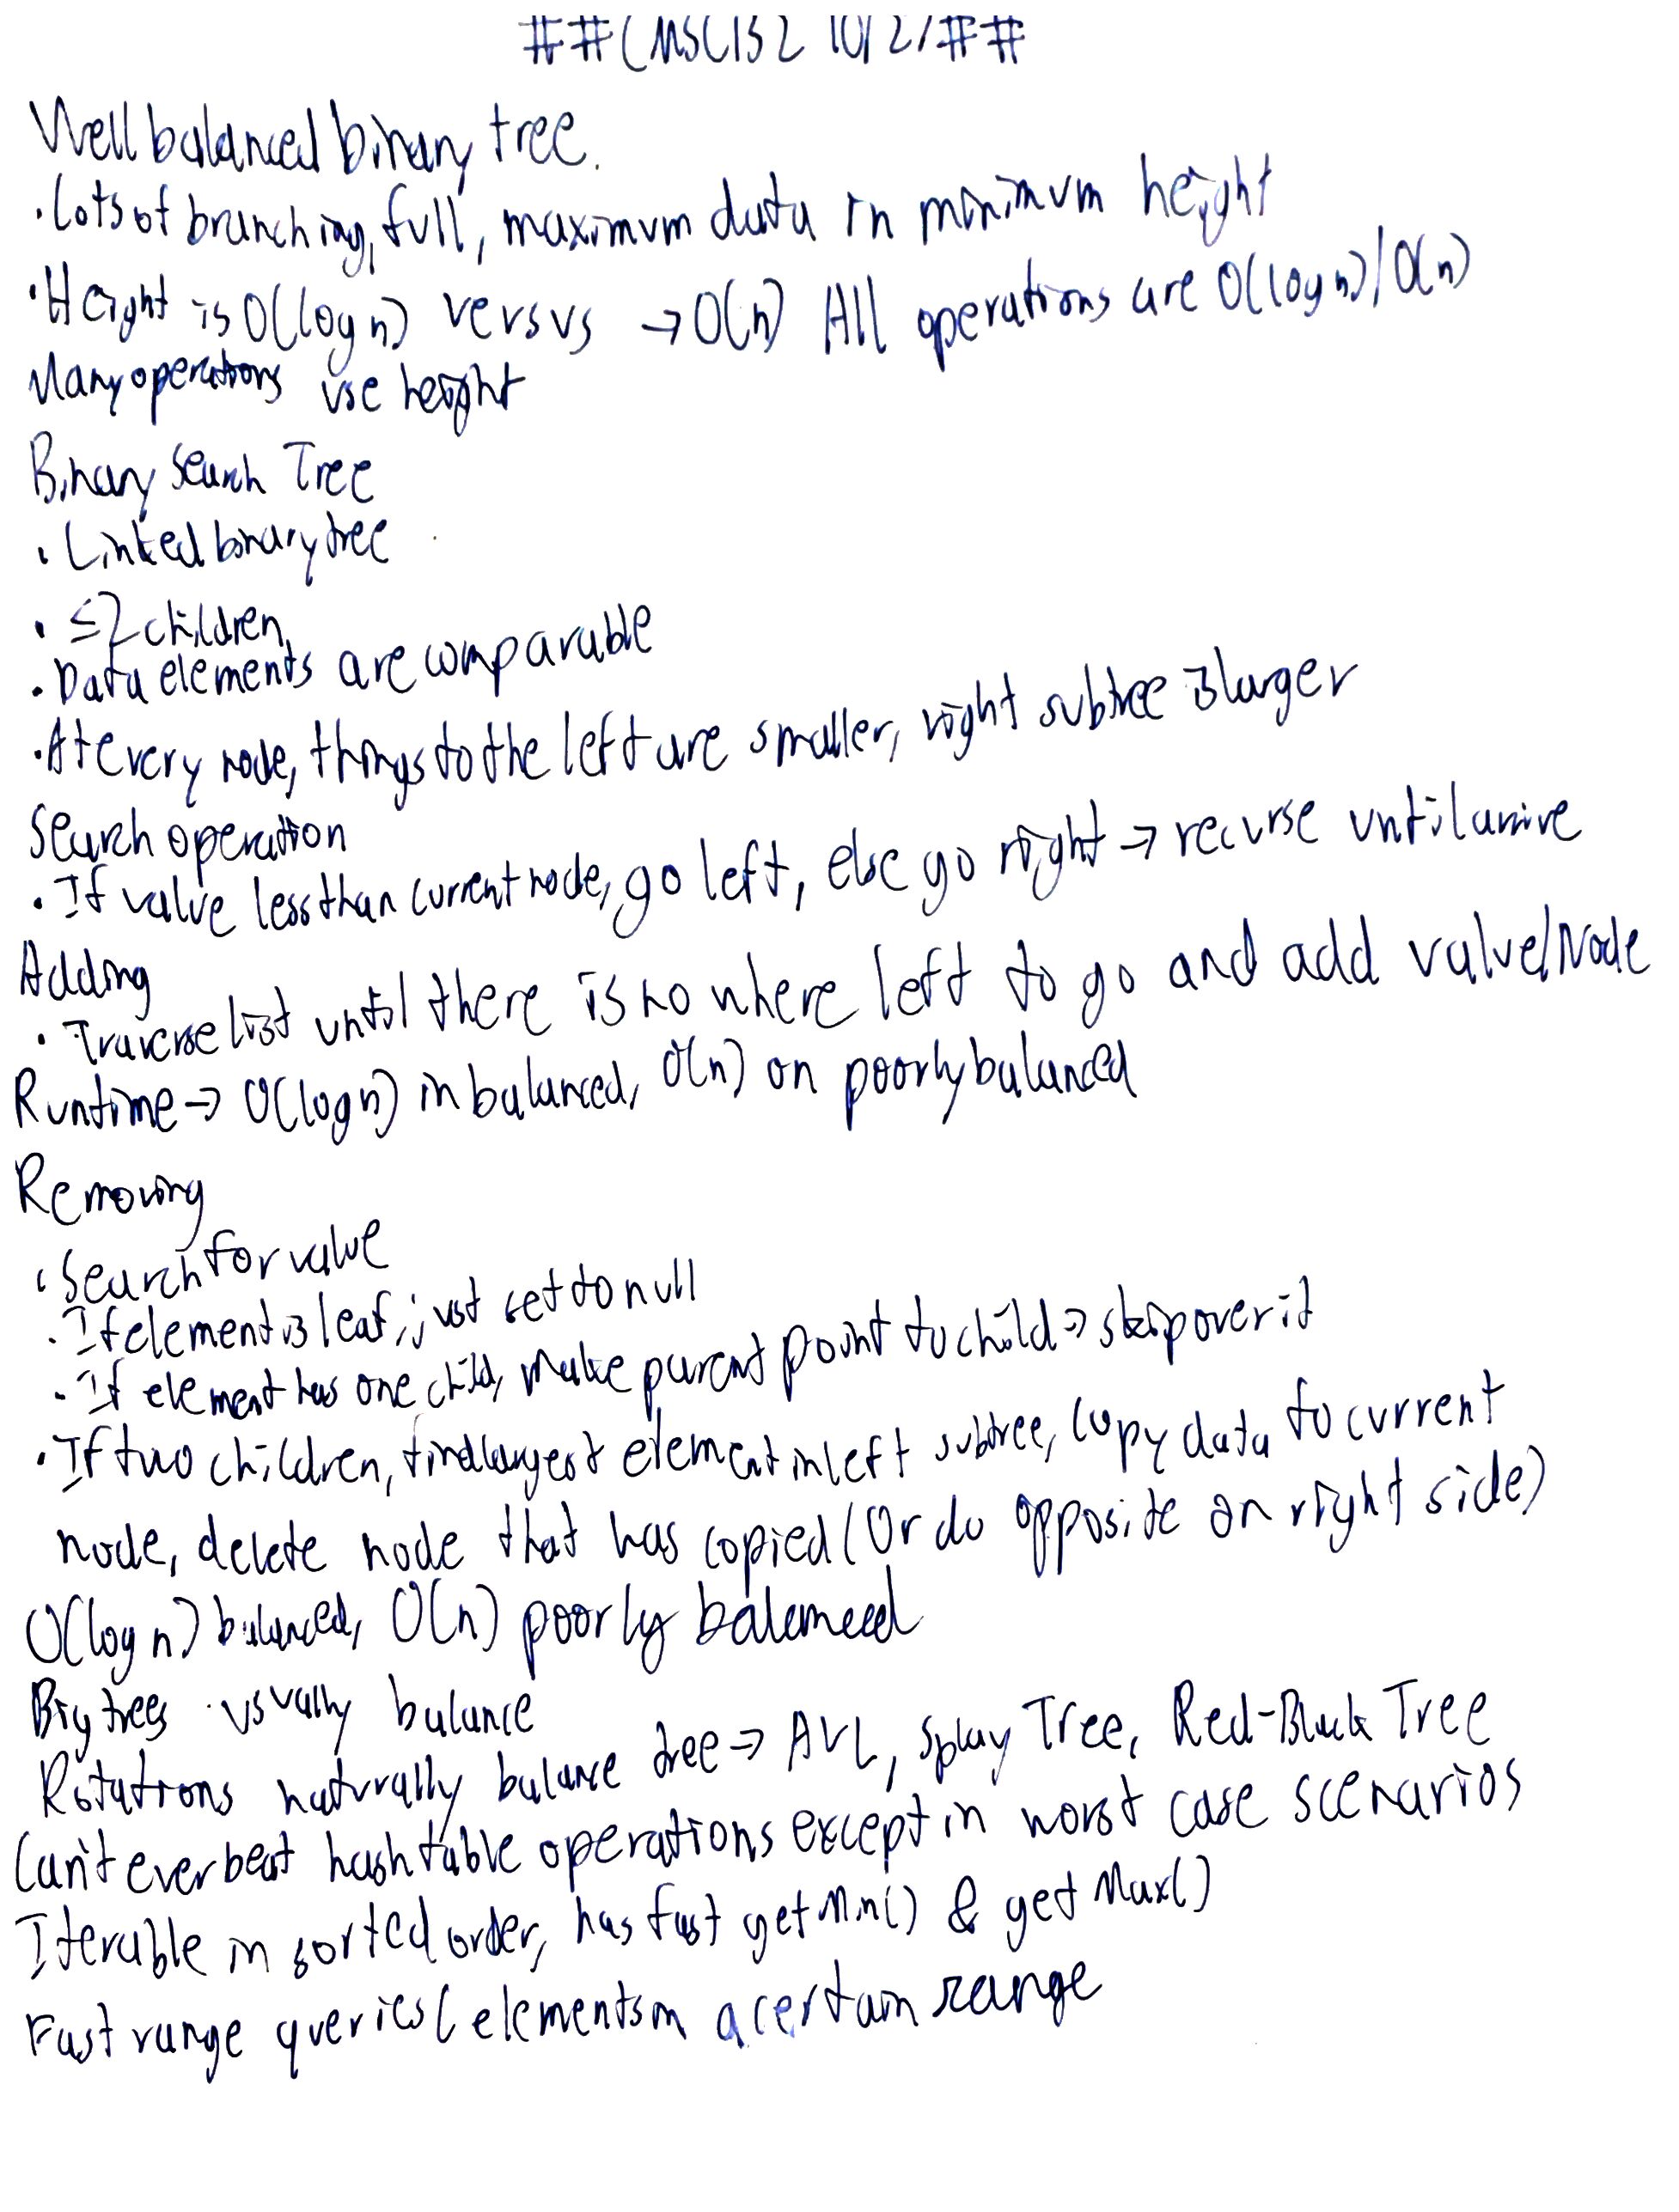 ##CMSC132 10/21##
Well balanced binary tree.
· Lots of branching, full, maximum data in minimum height
· Height is O(log n) versus → O(n) All operations are O(log n)/O(n)
Many operations use height
Binary Search Tree
· Linked binary tree
· ≤2 children
· Data elements are comparable
· At every node, things to the left are smaller, right subtree is larger
Search operation
· If value less than current node, go left, else go right → recurse until arrive
Adding
· Traverse list until there is no where left to go and add value/Node
Runtime → O(log n) in balanced, O(n) on poorly balanced
Removing
· Search for value
· If element is leaf, just set to null
· If element has one child, make parent point to child → skip over it
· If two children, find largest element in left subtree, copy data to current
node, delete node that has copied (Or do opposite on right side)
O(log n) balanced, O(n) poorly balanced
Big trees usually balance
Rotations naturally balance tree → AVL, Splay Tree, Red-Black Tree
Can't ever beat hash table operations except in worst case scenarios
Iterable in sorted order, has fast getMin() & getMax()
Fast range queries (elements in a certain range